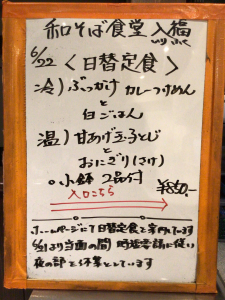 和そば食堂 入福
いり ふく
6/22 〈日替定食〉
冷）ぶっかけ カレーつけめん
と
白ごはん
温）甘あげ玉子とじ
と
おにぎり(さけ)
○小鉢 2品付
入口こちら
¥850.-
ホームページにて日替定食を案内しています
6/1より当面の間 時短要請に従い
夜の部を休業としています